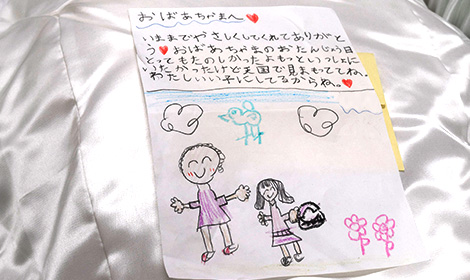 おばあちゃまへ♥
いままでやさしくしてくれてありがと
う♥おばあちゃまのおたんじょう日
とってもたのしかったよもっといっしょに
いたかったけど天国で見まもっててね。
わたしいい子にしてるからね。♥